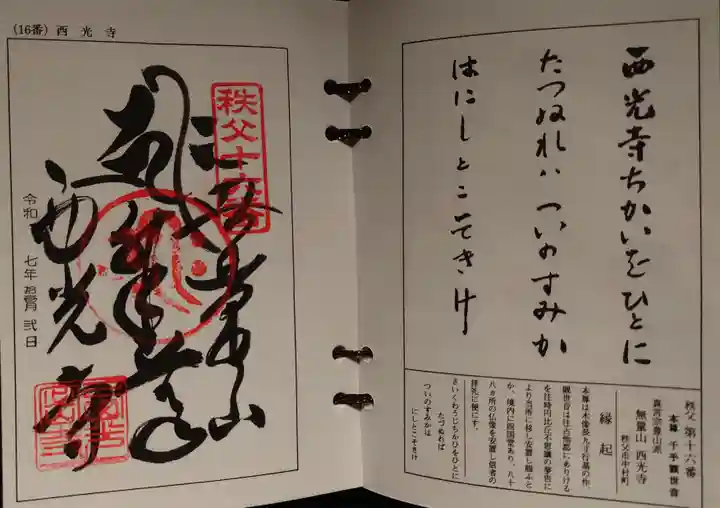 (16番) 西光寺
秩父十六番
無量山
西光寺
令和 七年
弐日
西光寺ちかいをひとに
たつぬれハ ついのすみか
はにしとこそきけ
秩父 第十六番
本尊 千手観世音
真言宗豊山派
無量山 西光寺
秩父市中村町
縁起
本尊は木像長九寸行基の作、
観世音は往古他郡にありける
を往時円比丘不思議の夢告に
より当所に移し安置し賜ふと
か、境内に四国堂あり、八十
八ヵ所の仏像を安置し信者の
拝礼に便にす。
たづぬれば
さいくわうじちかひをひとに
ついのすみかは
にしとこそきけ